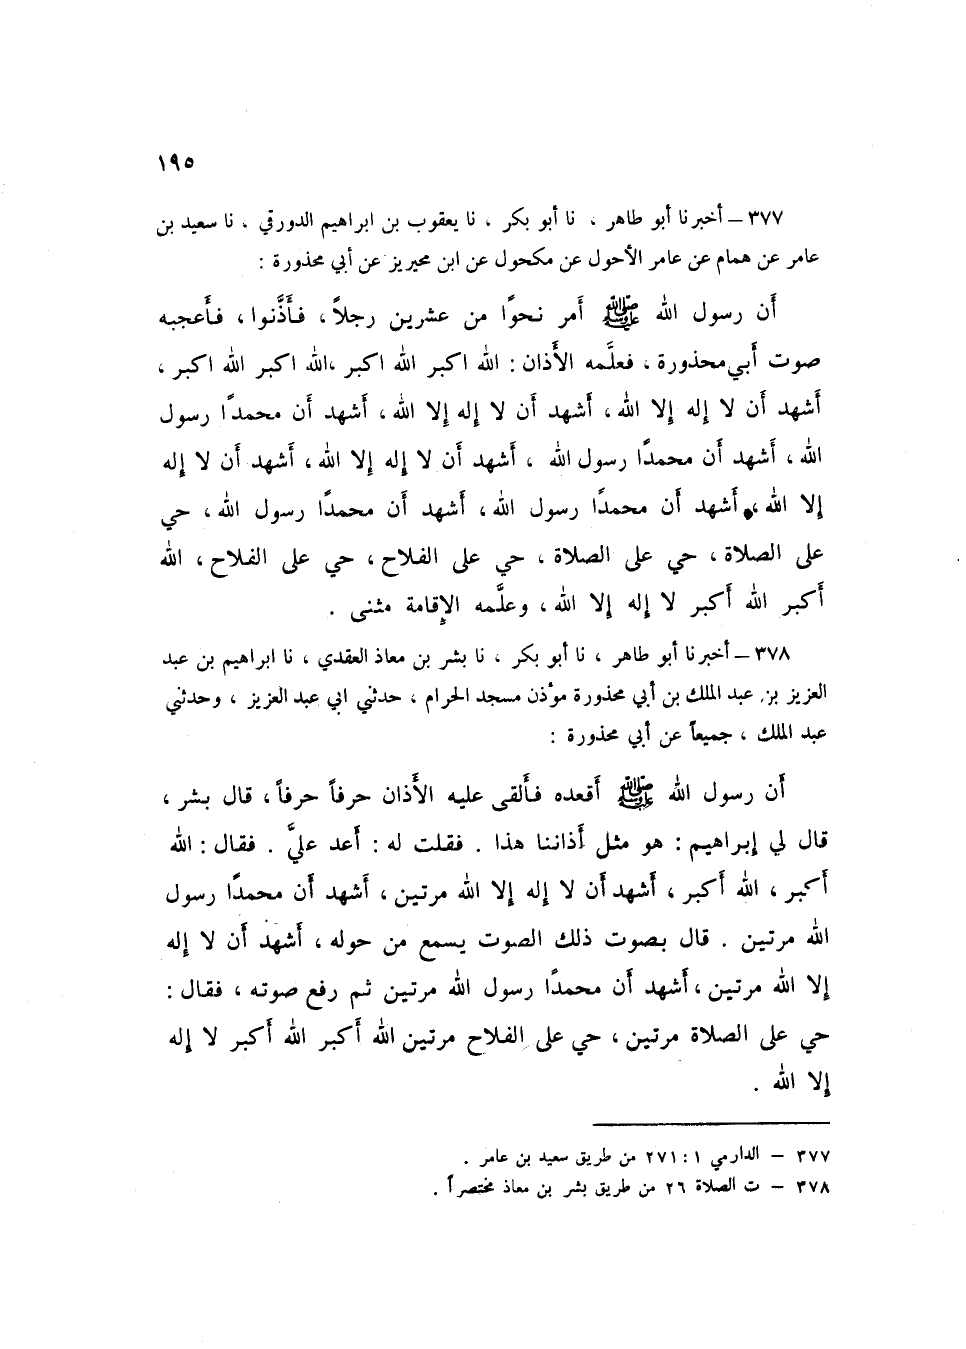 ١٩٥
٣٧٧ – أخبرنا أبو طاهر ، نا أبو بكر ، نا يعقوب بن ابراهيم الدورقي ، نا سعيد بن
عامر عن همام عن عامر الأحول عن مكحول عن ابن محيريز عن أبي محذورة :
أن رسول الله ﷺ أمر نحوًا من عشرين رجلاً ، فأذَّنوا ، فأعجبه
صوت أبي محذورة ، فعلَّمه الأذان : الله اكبر الله اكبر ،الله اكبر الله اكبر ،
أشهد أن لا إله إلا الله ، أشهد أن لا إله إلا الله ، أشهد أن محمدًا رسول
الله ، أشهد أن محمدًا رسول الله ، أشهد أن لا إله إلا الله ، أشهد أن لا إله
إلا الله ، أشهد أن محمدًا رسول الله ، أشهد أن محمدًا رسول الله ، حي
على الصلاة ، حي على الصلاة ، حي على الفلاح ، حي على الفلاح ، الله
أكبر الله أكبر لا إله إلا الله ، وعلَّمه الإقامة مثنى .
٣٧٨ – أخبرنا أبو طاهر ، نا أبو بكر ، نا بشر بن معاذ العقدي ، نا ابراهيم بن عبد
العزيز بن عبد الملك بن أبي محذورة مؤذن مسجد الحرام ، حدثني ابي عبد العزيز ، وحدثني
عبد الملك ، جميعاً عن أبي محذورة :
أن رسول الله ﷺ أقعده فألقى عليه الأذان حرفاً حرفاً ، قال بشر ،
قال لي إبراهيم : هو مثل أذاننا هذا . فقلت له : أعد عليَّ . فقال : الله
أكبر ، الله أكبر ، أشهد أن لا إله إلا الله مرتين ، أشهد أن محمدًا رسول
الله مرتين . قال بصوت ذلك الصوت يسمع من حوله ، أشهد أن لا إله
إلا الله مرتين ، أشهد أن محمدًا رسول الله مرتين ثم رفع صوته ، فقال :
حي على الصلاة مرتين ، حي على الفلاح مرتين الله أكبر الله أكبر لا إله
إلا الله .
٣٧٧ – الدارمي ١ : ٢٧١ من طريق سعيد بن عامر .
٣٧٨ – ت الصلاة ٢٦ من طريق بشر بن معاذ مختصراً .